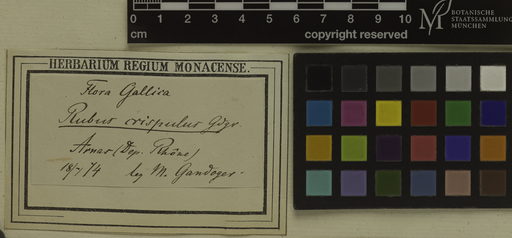 0 1 2 3 4 5 6 7 8 9 10
cm
copyright reserved
BOTANISCHE
STAATSSAMMLUNG
MÜNCHEN
HERBARIUM REGIUM MONACENSE.
Flora Gallica
Rubus crispulus Gdgr.
Arnas (Dep. Rhône)
18/7 74 leg M. Gandoger.